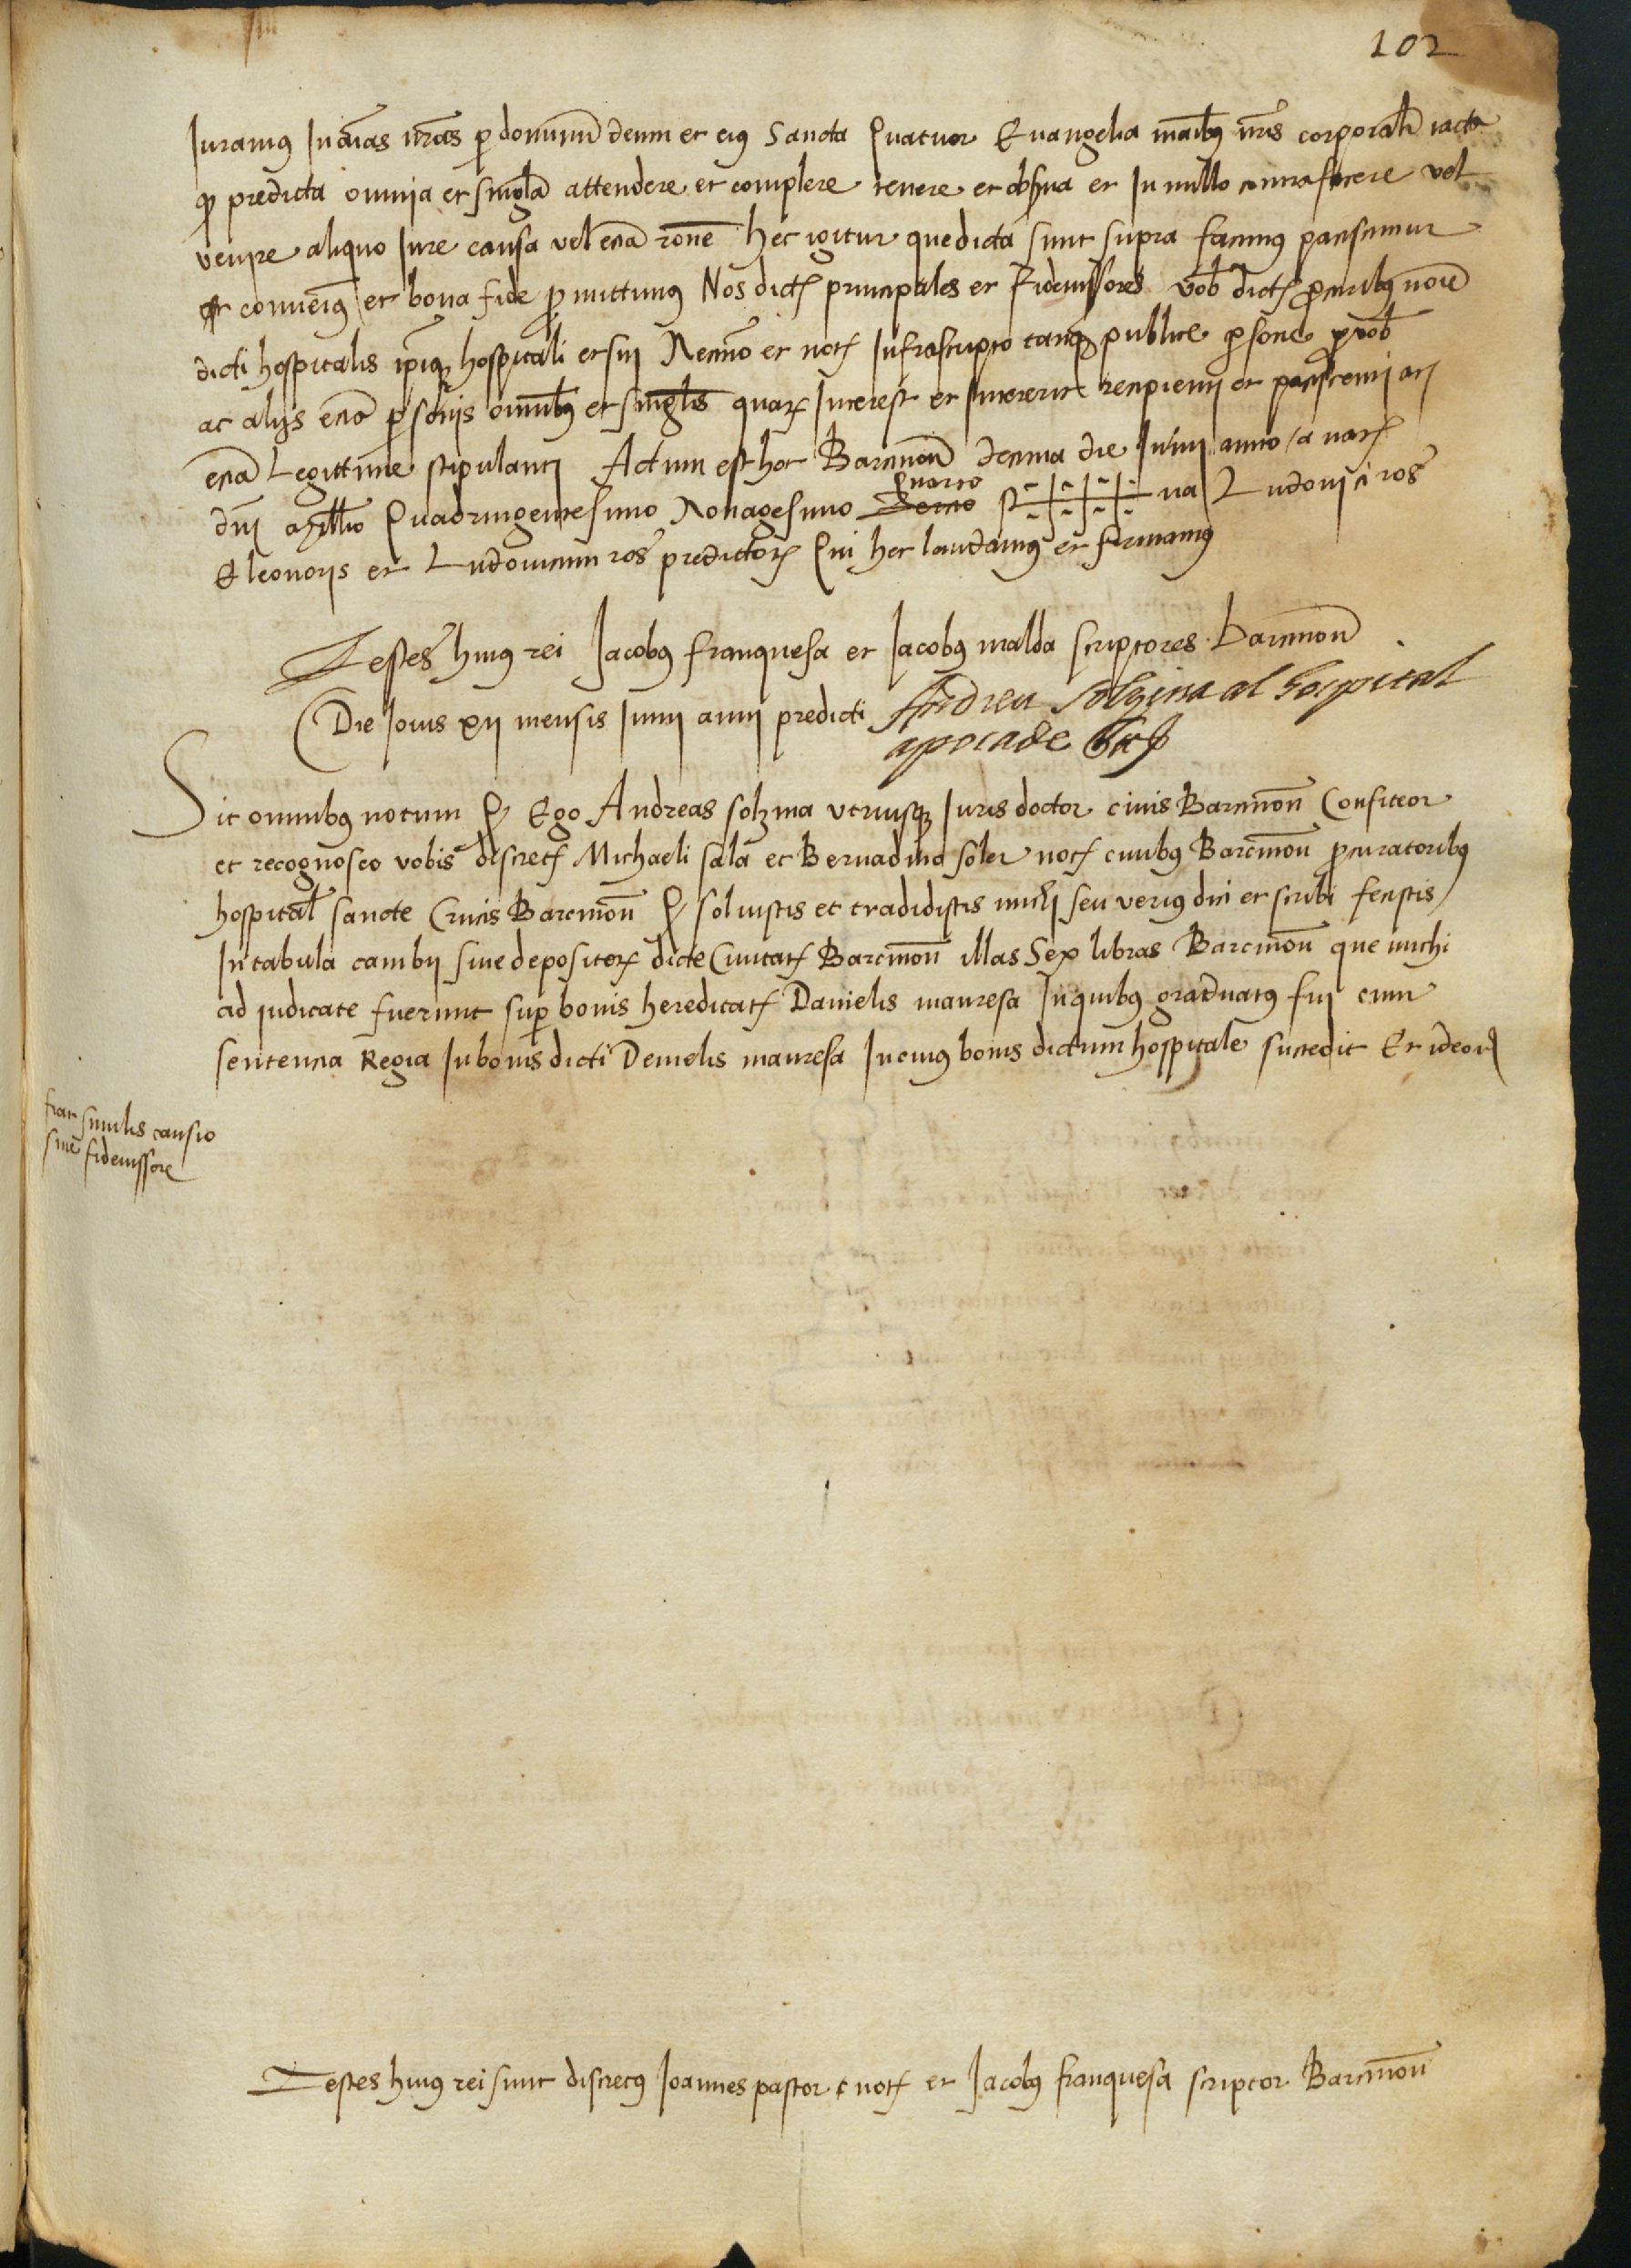 102
Iuramus In aĩas nr̃as p donũm deum et eius Sancta Quatuor Euangelia maĩbus nr̃is corporalr̃ tacta
q predicta omnia et singl̃a attendere et complere tenere et obs̃ua et In nullo contrafacere vel
venire aliquo Iure causa vel ecia rõne hec igitur que dicta sunt supra facimus paciscimur
et conuenius et bona fide p mittimus Nos dict principales et Fideiussores vob dict procuribus noĩe
dicti hospitalis ipiq hospitali et sui Necnõ et not Infrascripto tanq publice p sone p vob
ac alijs ecia p sonis omnibus et singl̃is quar Interest et Intererit recipienti et paciscenti ac
ecia Legittime stipulanti Actum est hoc Barcinoñ decima die Iunij anno a nat
dñi Mill̃o Quadringentesimo Nonagesimo Tercio Quarto S na Ludouici ros
Eleonoris et Ludouicum ros predictor Qui hec laudamus et firmamus
Testes huius rei Iacobus franquesa et Iacobus malda scriptores Barcinoñ
Die Iouis xij mensis Iunij anni predicti Andreu solzina al hospital
apocade
Sit omnibus notum Q Ego Andreas solzina vtriusq Iuris doctor ciuis Barcinoñ Confiteor
et recognosco vobis discret Michaeli sala et Bernadino soler not ciuibus Barcinoñ p curatoribus
hospital̃ sancte Crucis Barcinoñ Q soluistis et tradidistis michi seu verius dici et scribi fecistis
In tabula cambij siue depositor dicte Ciuitat Barcinoñ illas Sex libras Barcinoñ que michi
ad iudicate fuerunt sup bonis hereditat Danielis manresa In quibus graduatus fui cum
sentencia Regia In bonis dicti Denielis manresa In cuius bonis dictum hospitale succedit Et ideo
fiat similis cansio
sine fideiussore
Testes huius rei sunt discretus Ioannes pastor not et Iacobus franquesa scriptor Barcinoñ